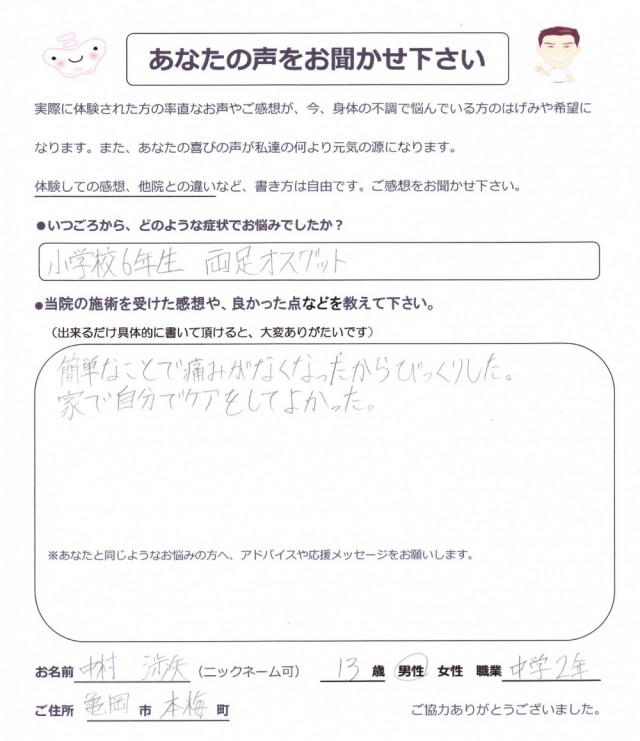 あなたの声をお聞かせ下さい
実際に体験された方の率直なお声やご感想が、今、身体の不調で悩んでいる方のはげみや希望に
なります。また、あなたの喜びの声が私達の何より元気の源になります。
体験しての感想、他院との違いなど、書き方は自由です。ご感想をお聞かせ下さい。
●いつごろから、どのような症状でお悩みでしたか？
小学校6年生 両足オスグット
●当院の施術を受けた感想や、良かった点などを教えて下さい。
（出来るだけ具体的に書いて頂けると、大変ありがたいです）
簡単なことで痛みがなくなったからびっくりした。
家で自分でケアをしてよかった。
※あなたと同じようなお悩みの方へ、アドバイスや応援メッセージをお願いします。
お名前 中村 渉矢 （ニックネーム可） 13 歳 男性 女性 職業 中学2年
ご住所 亀岡 市 本梅 町 ご協力ありがとうございました。